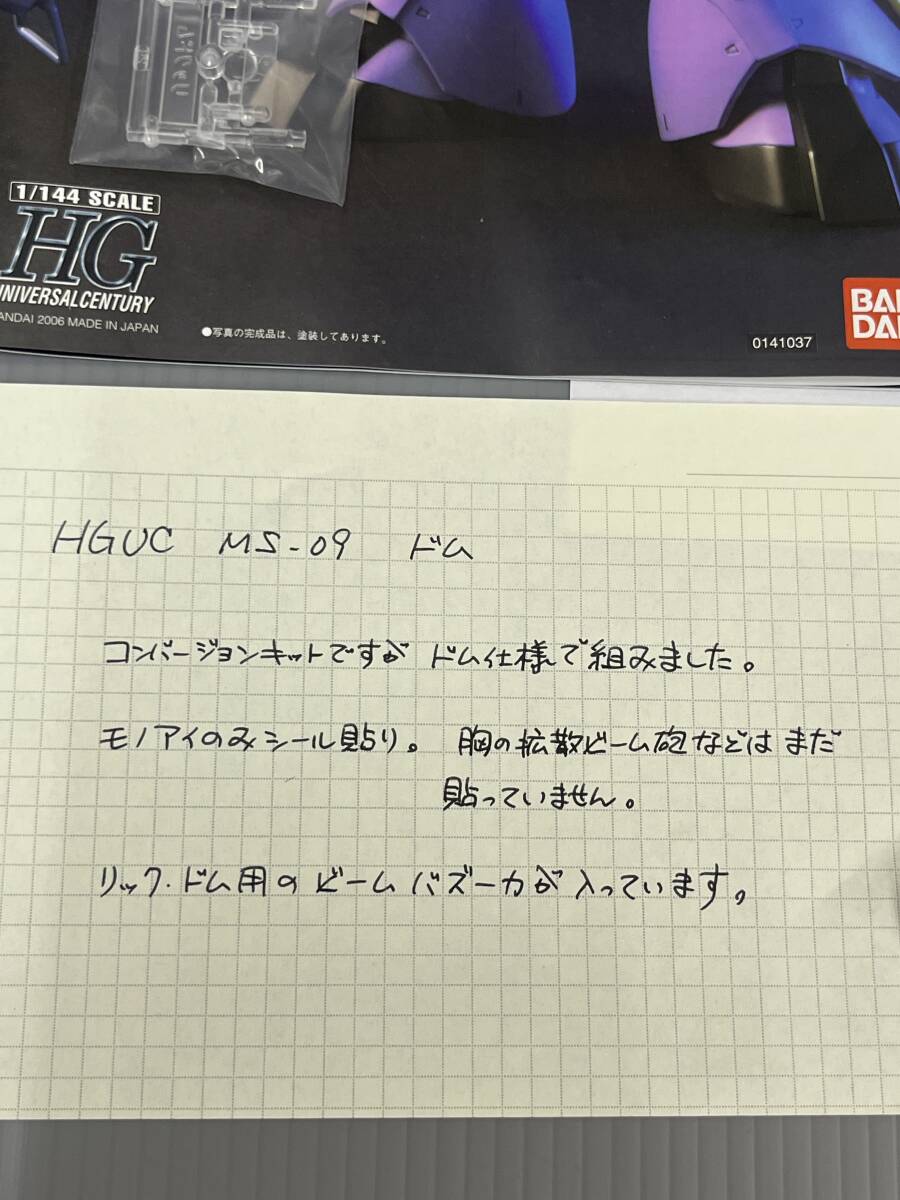 1/144 SCALE
HG
UNIVERSALCENTURY
BANDAI 2006 MADE IN JAPAN
●写真の完成品は、塗装してあります。
0141037
BAN
DAI
HGUC MS-09 ドム
コンバージョンキットですが ドム仕様で組みました。
モノアイのみシール貼り。 胸の拡散ビーム砲などは まだ
貼っていません。
リック・ドム用の ビームバズーカが入っています。